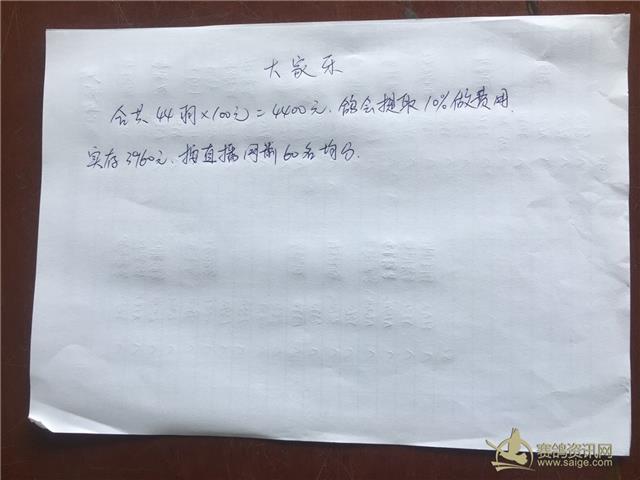 大家乐
合共44羽×100元=4400元.鸽会提取10%做费用.
实存3960元.按直播网前60名均分.
赛鸽资讯网
www.saige.com